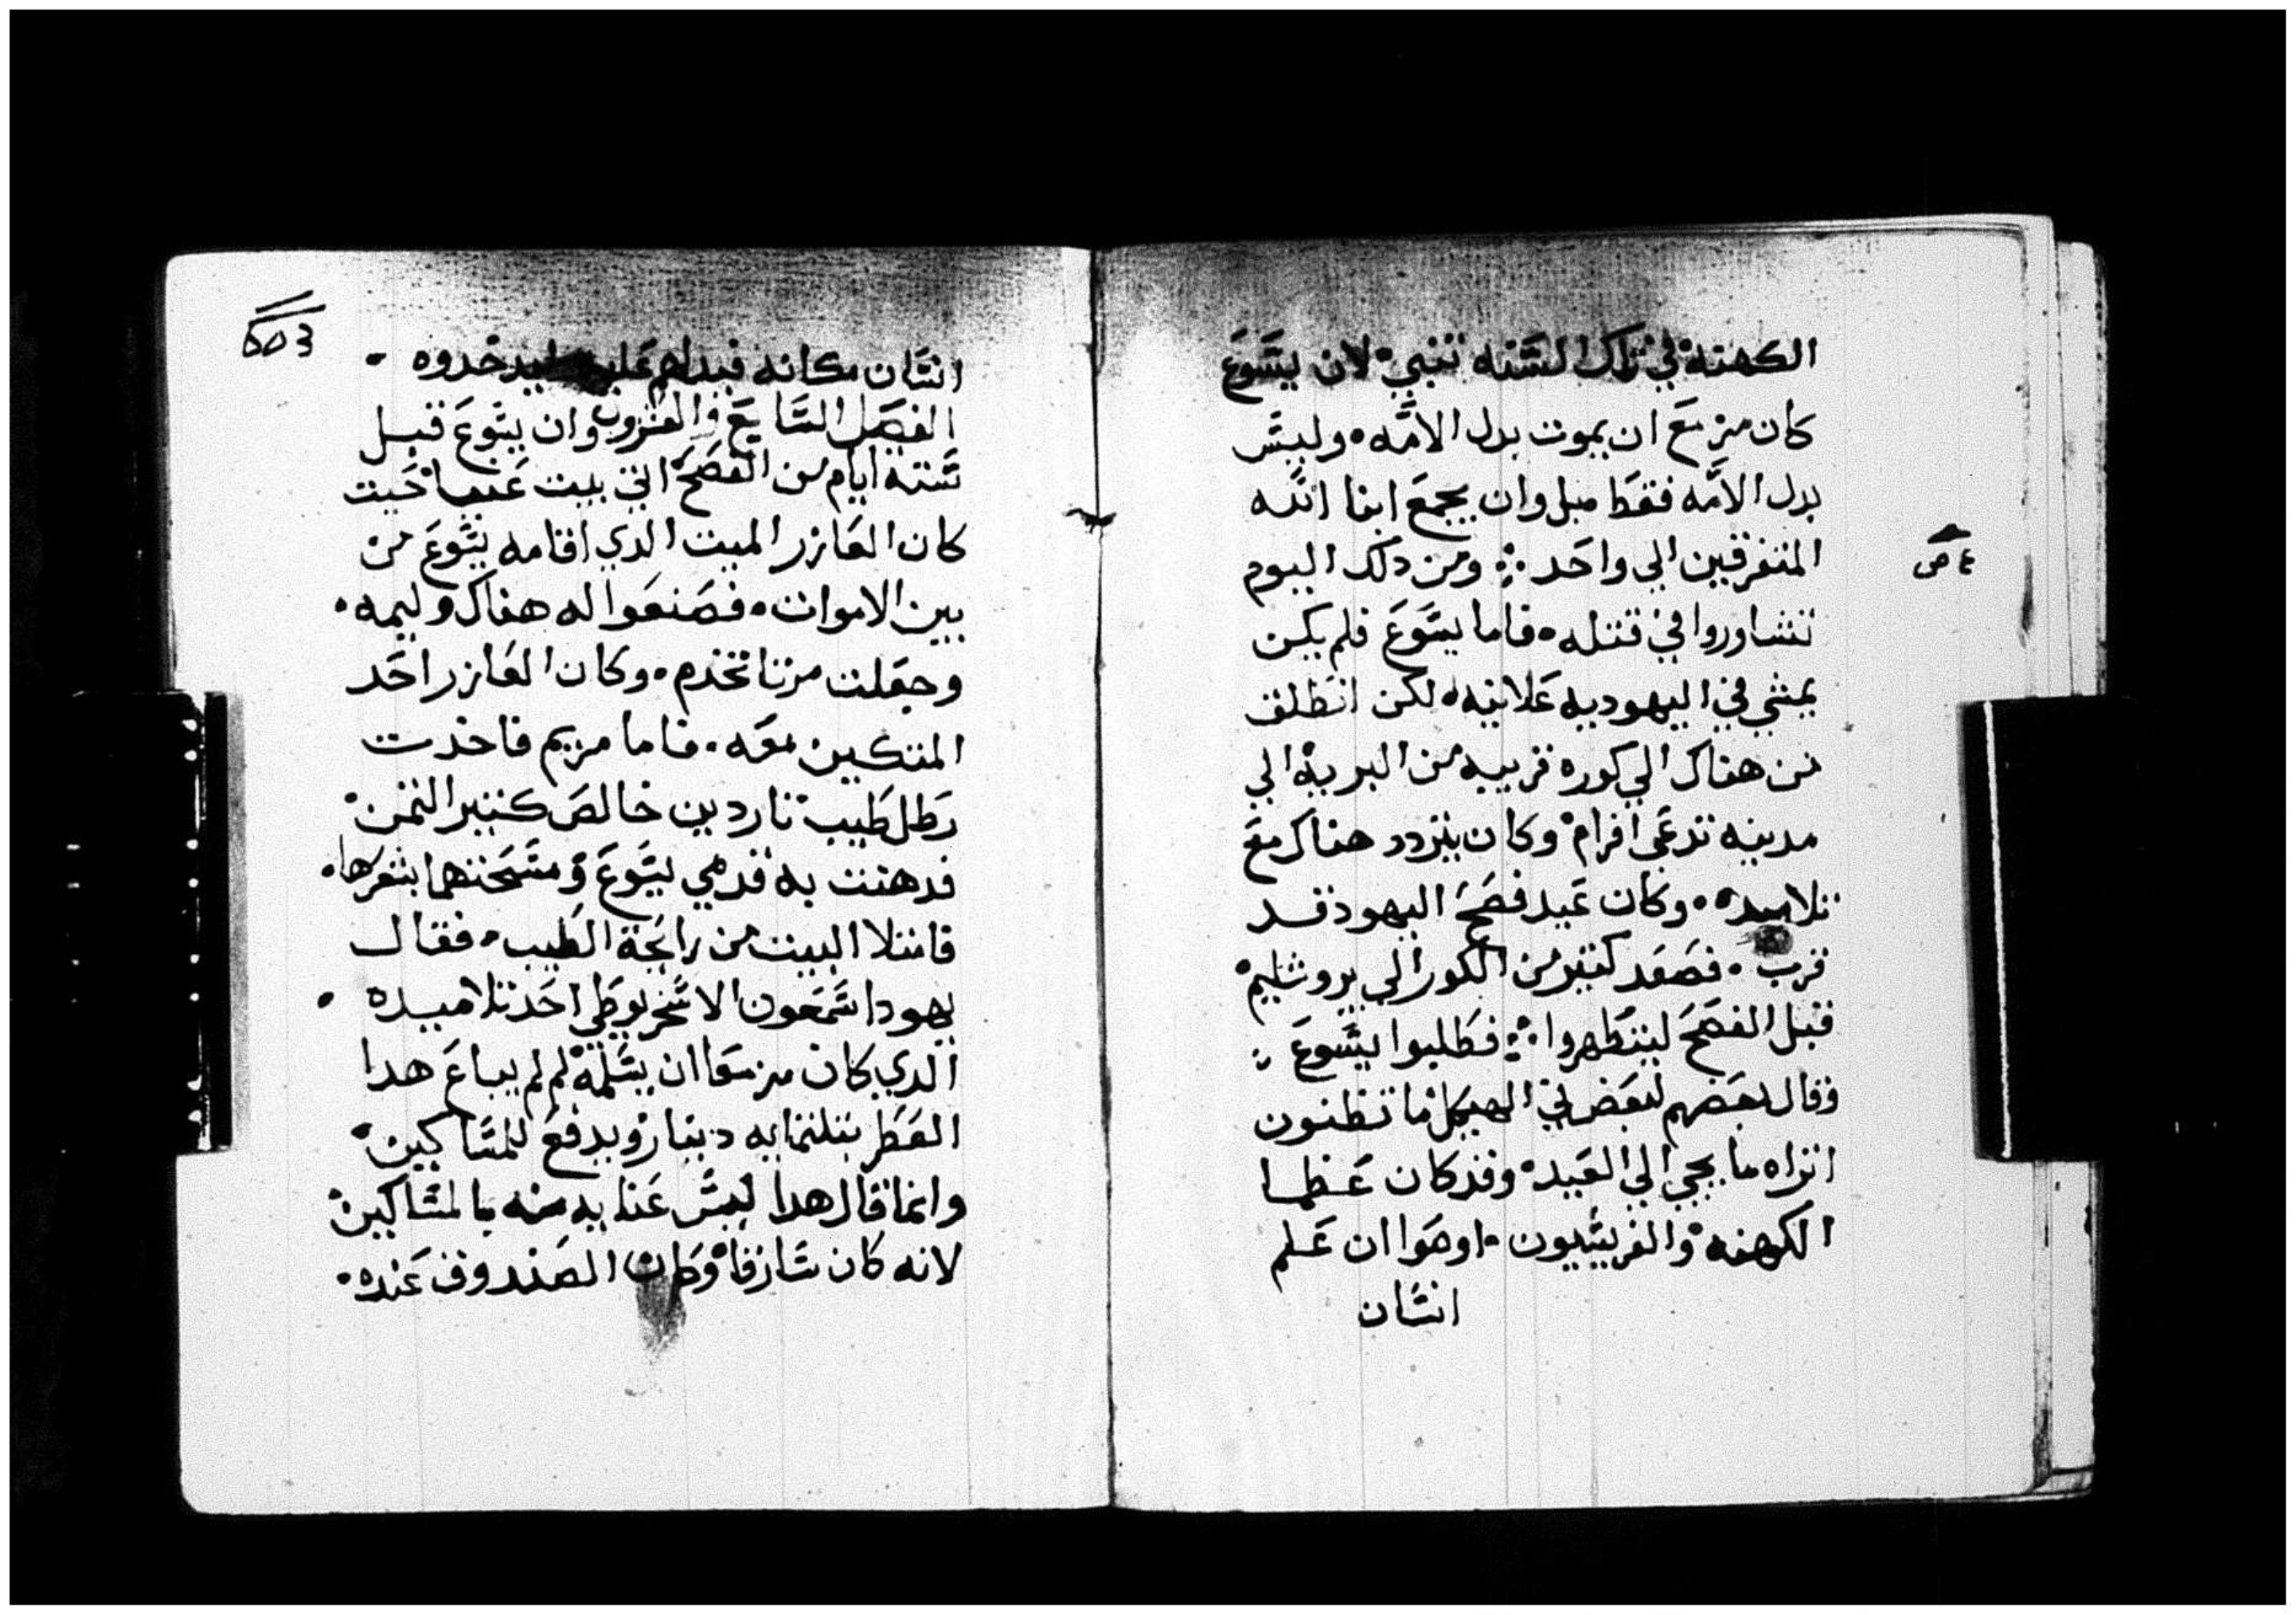 الكهنة في تلك السنه تنبي لان يسوع
كان مزمع ان يموت بدل الامه وليس
بدل الامه فقط مبل وان يجمع ابنا الله
المتفرقين الي واحد ومن دلك اليوم
تشاوروا في قتله فاما يسوع فلم يكن
يمشي في اليهوديه علانيه لكن انطلق
من هناك الي كوره قريبه من البرية الي
مدينه تدعي افرام وكان يتردد هناك مع
تلاميده وكان عيد فصح اليهود قد
قرب فصعد كتير من الكور الي يروشليم
قبل الفصح ليتطهروا فطلبوا يسوع
وقال بعضهم لبعض في الهيكل ما تظنون
اتراه ما يجي الي العيد وقد كان عظما
الكهنه والفريسيون اوصوا ان علم
انسان
انسان مكانه فيدلهم عليه ليدخدوه
الفصل السابع والعشرون وان يسوع قبل
ستة ايام من الفصح اتي بيت عنيا حيت
كان العازر الميت الدي اقامه يسوع من
بين الاموات فصنعوا له هناك وليمه
وجعلت مرتا تخدم وكان العازر احد
المتكين معه فاما مريم فاخدت
رطل طيب ناردين خالص كتير التمن
فدهنت به قدمي يسوع ومسحتهما بشعرها
فامتلا البيت من رايحة الطيب فقال
يهودا سمعون الاسخريوطي احد تلاميده
الدي كان مزمعا ان يسلمه لم لم يباع هدا
العطر بتلتمايه دينار ويدفع للمساكين
وانما قال هدا ليس عنايه منه بالمساكين
لانه كان سارقا وكان الصندوق عنده